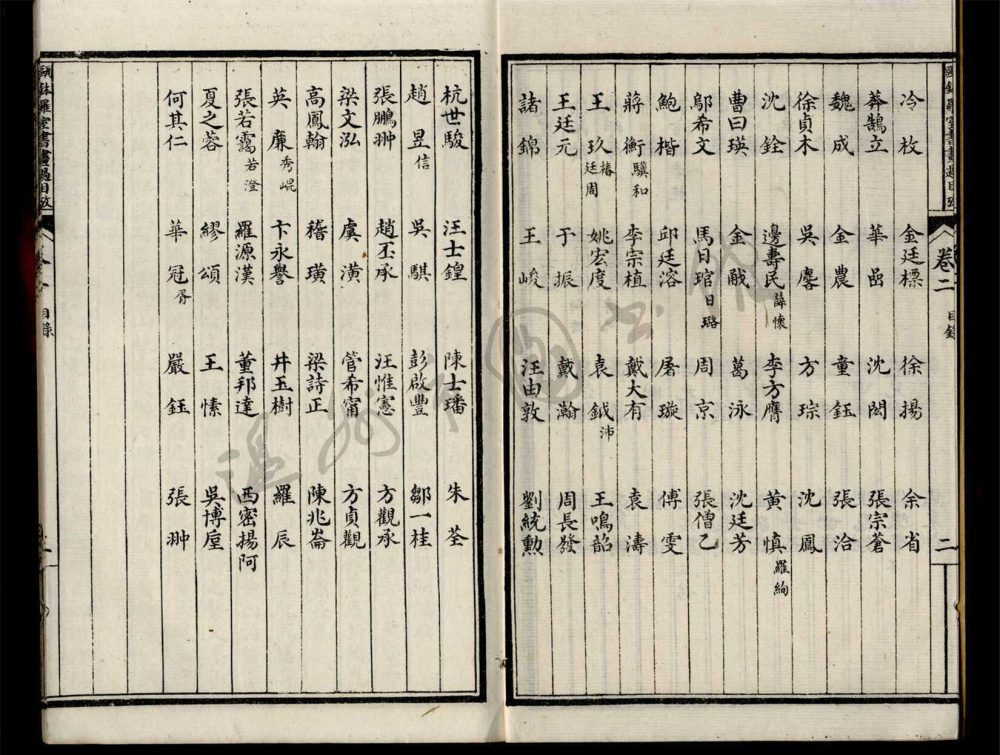 甌鉢羅室書畫過目攷
卷二
目錄
二
冷枚　金廷標　徐揚　余省
莽鵠立　華嵒　沈閎　張宗蒼
魏成　金農　童鈺　張洽
徐貞木　吳麐　方琮　沈鳳
沈銓　邊壽民諱懷　李方膺　黃慎羅絢
曹曰瑛　金戩　葛泳　沈廷芳
鄔希文　馬日琯日璐　周京　張僧乙
鮑楷　邱廷溶　屠璇　傅雯
蔣衡驥和　李宗植　戴大有　袁濤
王玖椿廷周　姚宏度　袁鉞沛　王鳴韶
王廷元　于振　戴瀚　周長發
諸錦　王峻　汪由敦　劉統勳
杭世駿　汪士鍠　陳士璠　朱荃
趙昱信　吳騏　彭啟豐　鄒一桂
張鵬翀　趙丕承　汪惟憲　方觀承
梁文泓　虞潢　管希甯　方貞觀
高鳳翰　嵇璜　梁詩正　陳兆崙
英廉秀崐　卞永譽　井玉樹　羅辰
張若靄若澄　羅源漢　董邦達　西密揚阿
夏之蓉　繆頌　王愫　吳博垕
何其仁　華冠胥　嚴鈺　張翀
甌鉢羅室書畫過目攷
目錄